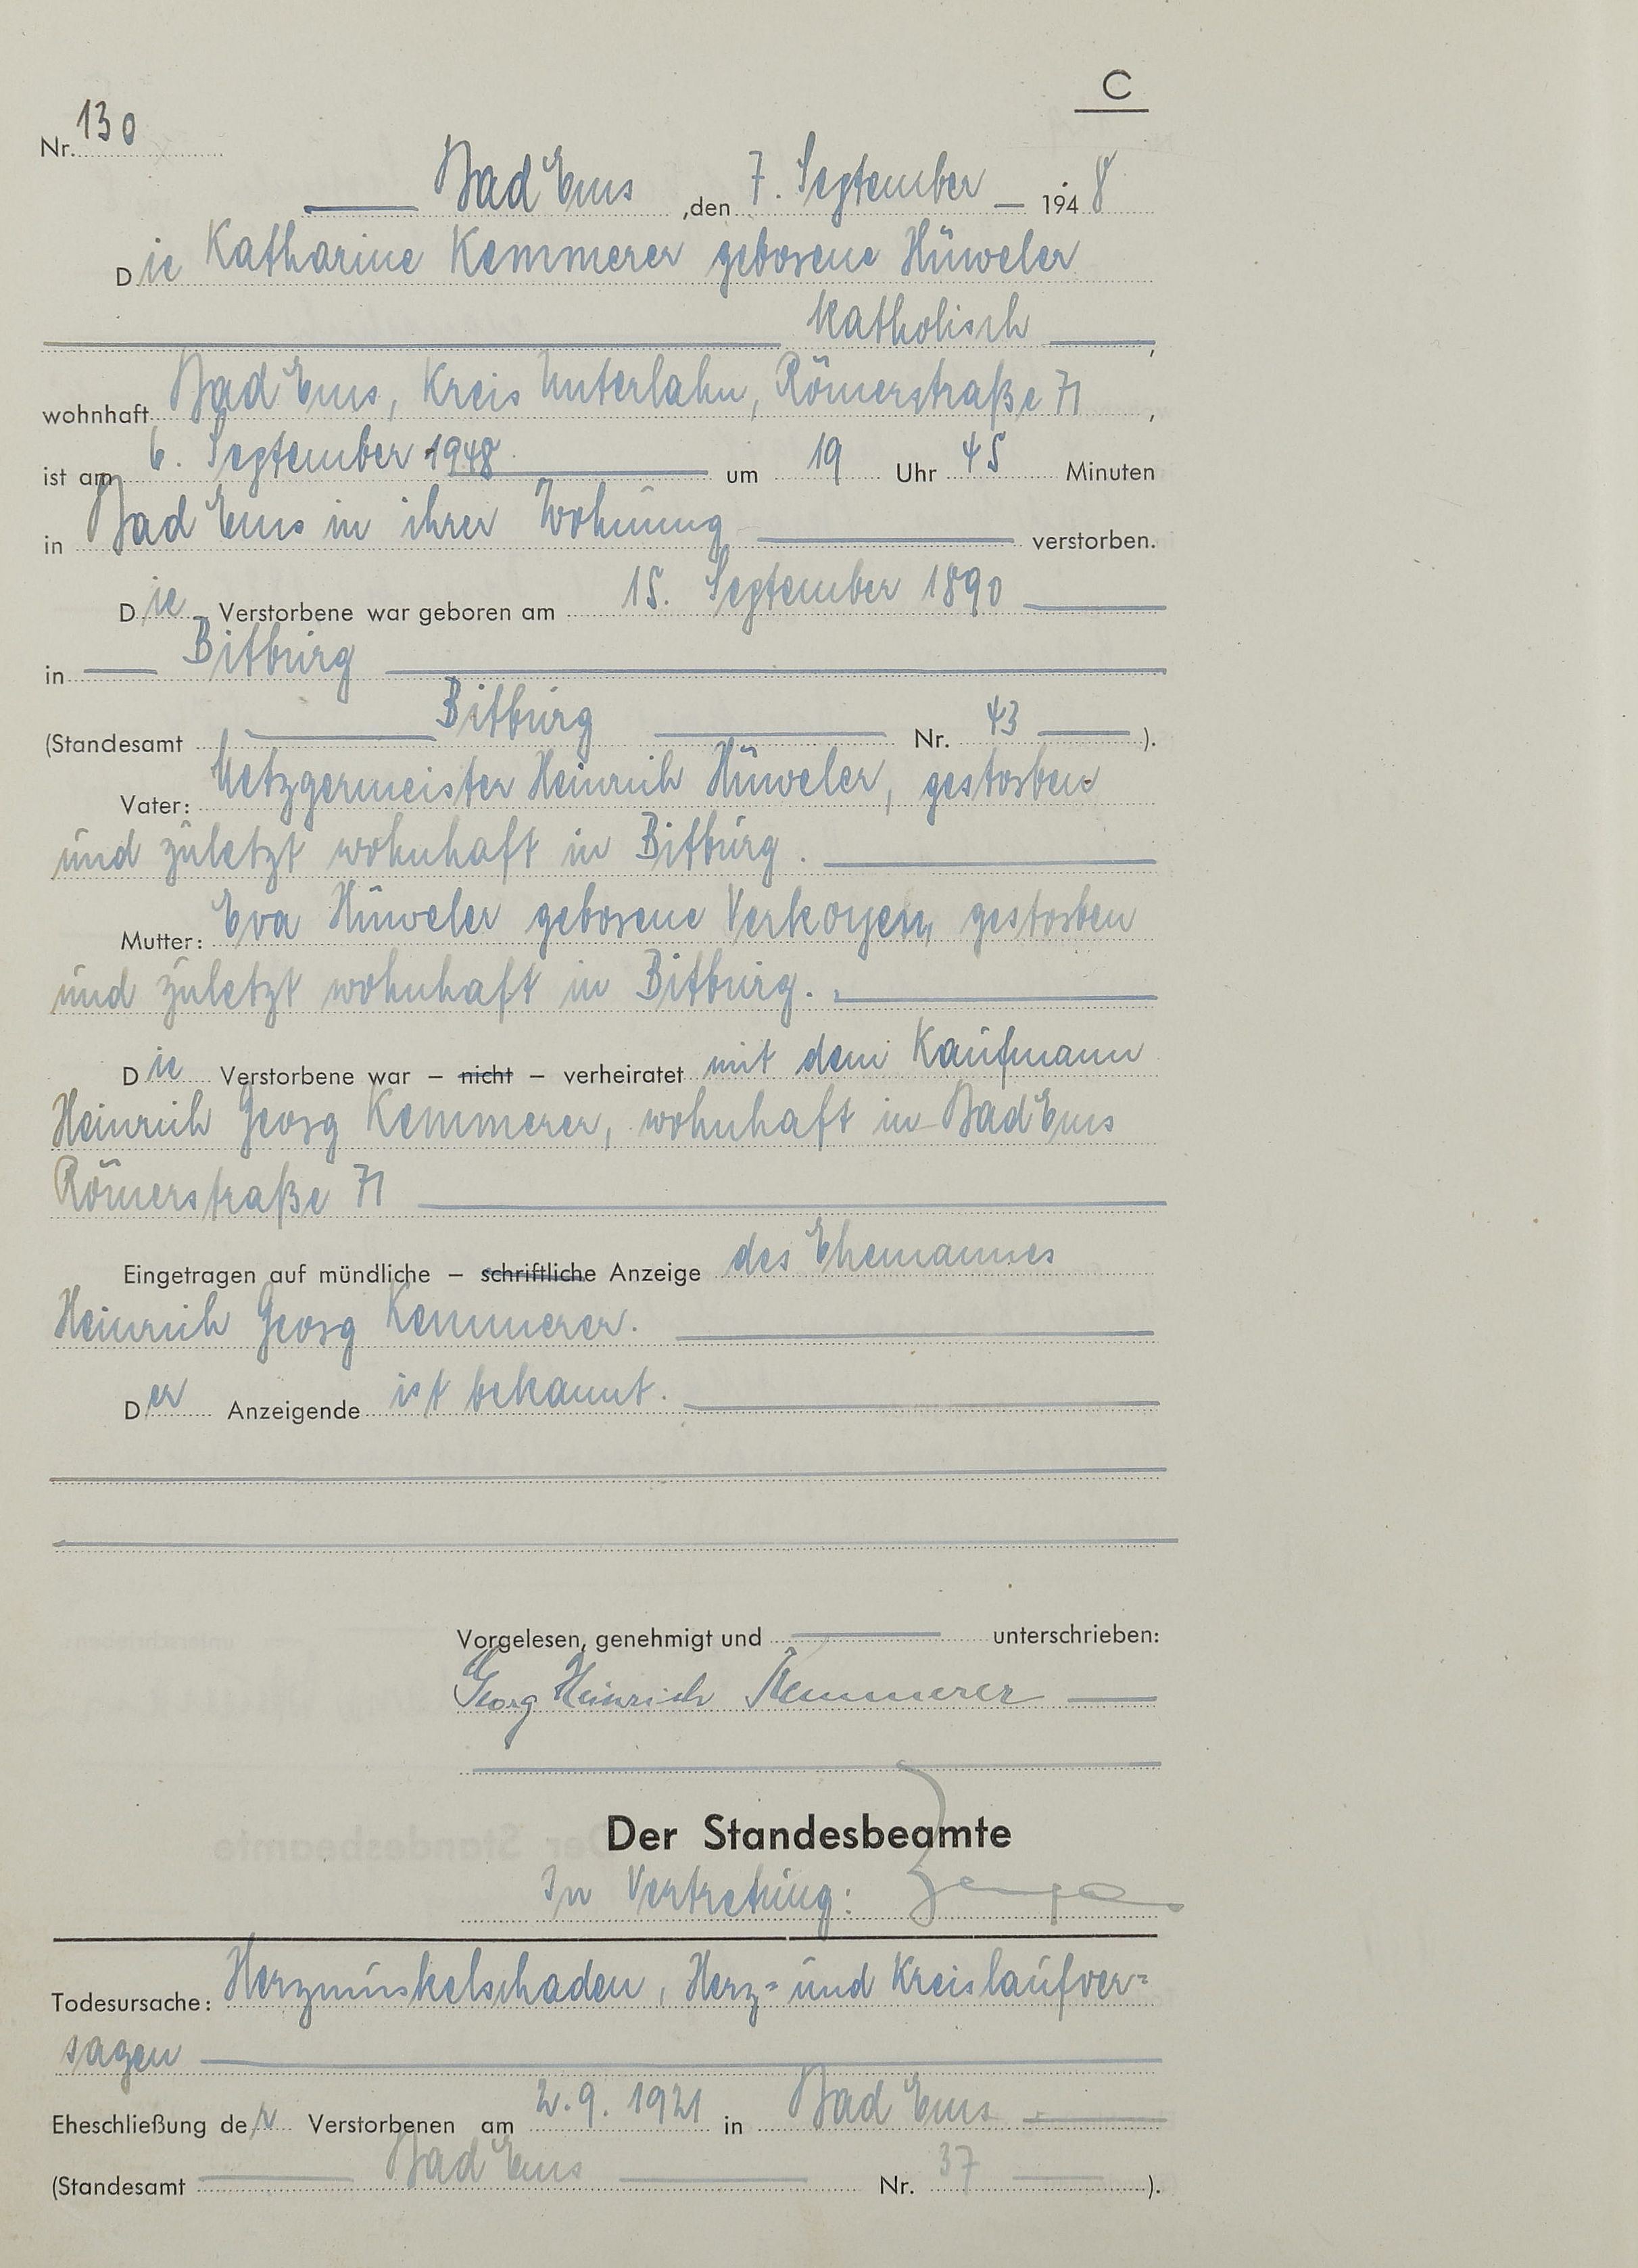 C
Nr. 130
Bad Ems, den 7. September 1948
Die Katharine Kemmerer geborene Hüweler
katholisch,
wohnhaft Bad Ems, Kreis Unterlahn, Römerstraße 71,
ist am 6. September 1948 um 19 Uhr 45 Minuten
in Bad Ems in ihrer Wohnung verstorben.
Die Verstorbene war geboren am 15. September 1890
in Bitburg
(Standesamt Bitburg Nr. 43 ).
Vater: Metzgermeister Heinrich Hüweler, gestorben
und zuletzt wohnhaft in Bitburg.
Mutter: Eva Hüweler geborene Verkoyen, gestorben
und zuletzt wohnhaft in Bitburg.
Die Verstorbene war – nicht – verheiratet mit dem Kaufmann
Heinrich Georg Kemmerer, wohnhaft in Bad Ems
Römerstraße 71
Eingetragen auf mündliche – schriftliche Anzeige des Ehemannes
Heinrich Georg Kemmerer.
Der Anzeigende ist bekannt.
Vorgelesen, genehmigt und unterschrieben:
Georg Heinrich Kemmerer
Der Standesbeamte
In Vertretung:
Todesursache: Herzmuskelschaden, Herz= und Kreislaufver=
sagen
Eheschließung der Verstorbenen am 2.9.1921 in Bad Ems
(Standesamt Bad Ems Nr. 37 ).